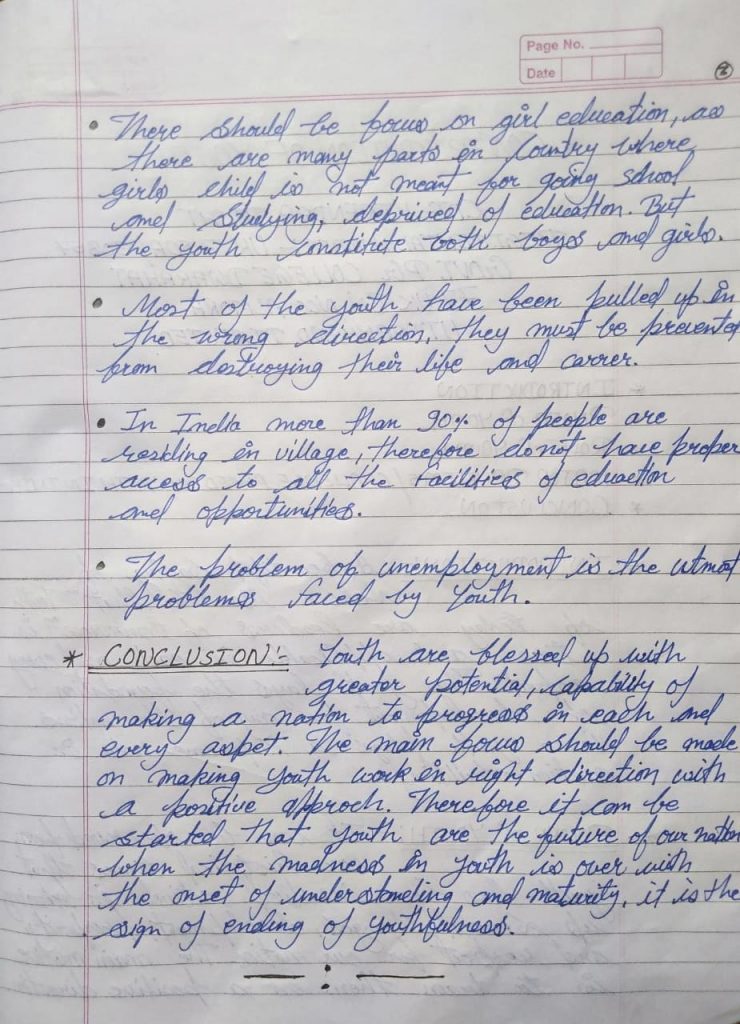 Page No.
Date
2
• There should be focus on girl education, as
there are many parts in Country where
girls child is not meant for going school
and studying, deprived of education. But
the youth constitute both boys and girls.
• Most of the youth have been pulled up in
the wrong direction, they must be prevented
from destroying their life and carrer.
• In India more than 90% of people are
residing in village, therefore donot have proper
access to all the facilities of eduaction
and opportunities.
• The problem of unemployment is the utmost
problems faced by Youth.
* CONCLUSION:- Youth are blessed up with
greater potential, capability of
making a nation to progress in each and
every aspet. The main focus should be made
on making youth work in right direction with
a positive approch. Therefore it can be
started that youth are the future of our nation
when the madness in youth is over with
the onset of understanding and maturity, it is the
sign of ending of youthfulness.